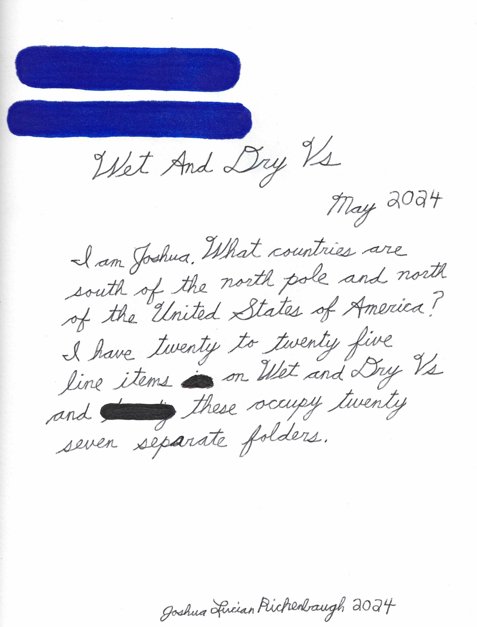 Wet And Dry Vs
May 2024
I am Joshua. What countries are
south of the north pole and north
of the United States of America?
I have twenty to twenty five
line items on Wet and Dry Vs
and these occupy twenty
seven separate folders.
Joshua Lucian Richenbaugh 2024